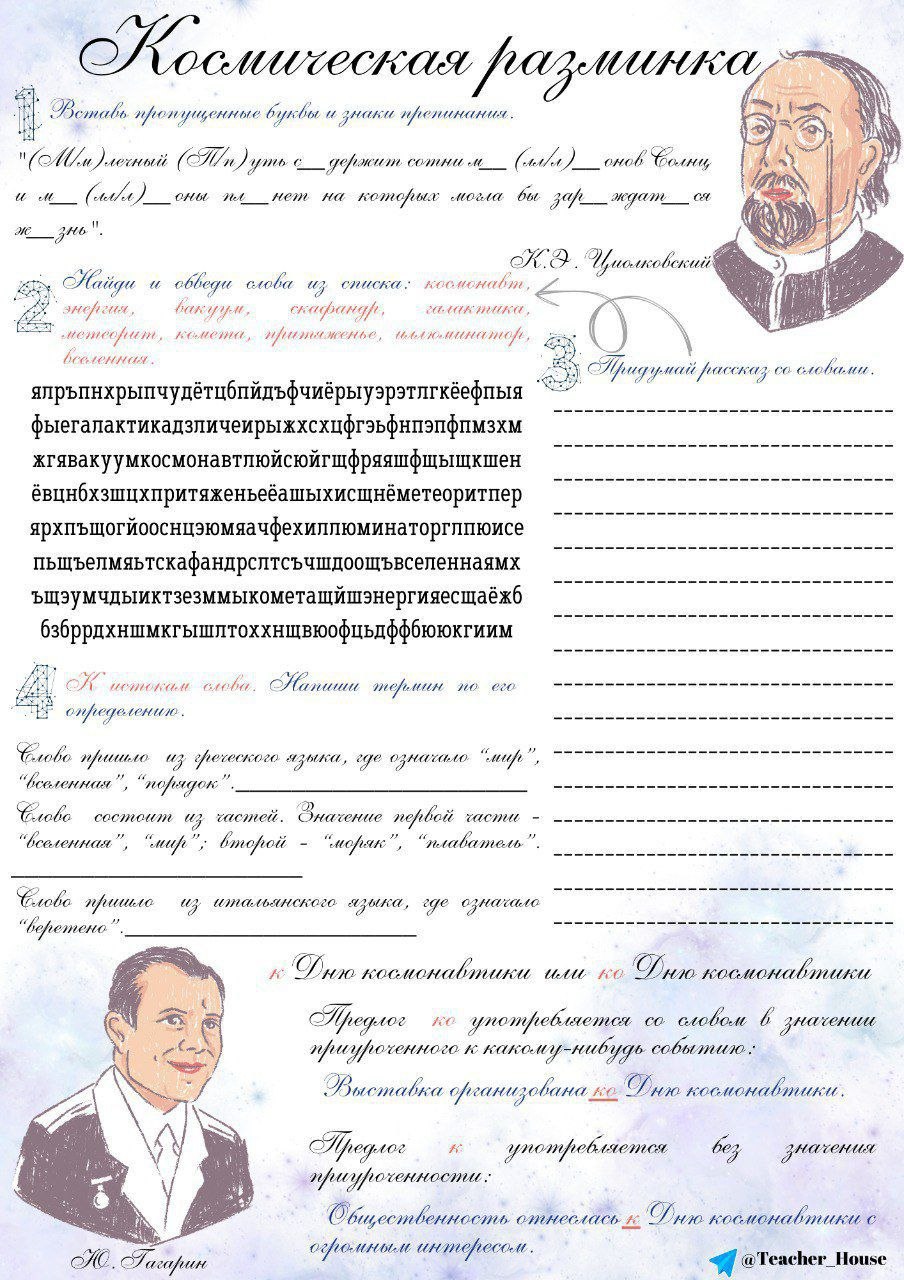 Космическая разминка
1 Вставь пропущенные буквы и знаки препинания.
"(М/м)лечный (П/п)уть с__держит сотни м__ (лл/л)__онов Солнц
и м__ (лл/л)__оны пл__нет на которых могла бы зар__ждат__ся
ж__знь".
К.Э. Циолковский
2 Найди и обведи слова из списка: космонавт,
энергия, вакуум, скафандр, галактика,
метеорит, комета, притяженье, иллюминатор,
вселенная.
ялръпнхрыпчудётцбпйдъфчиёрыуэрэтлгкёефпыя
фыегалактикадзличеирыжхсхцфгэьфнпэпфпмзхм
жгявакуумкосмонавтлюйсюйгщфряяшфщыщкшен
ёвцнбхзшцхпритяженьеёашыхисщнёметеоритпер
ярхпъщогйооснцэюмяачфехиллюминаторглпюисе
пьщъелмяьтскафандрслтсъчшдоощъвселеннаямх
ъщэумчдыиктзезммыкометащйшэнергияесщаёжб
бзбррдхншмкгышлтоххнщвюофцьдффбююкгиим
3 Придумай рассказ со словами.
4 К истокам слова. Напиши термин по его
определению.
Слово пришло из греческого языка, где означало “мир”,
“вселенная”, “порядок”.____________________
Слово состоит из частей. Значение первой части -
“вселенная”, “мир”; второй - “моряк”, “плаватель”.
____________________
Слово пришло из итальянского языка, где означало
“веретено”.____________________
к Дню космонавтики или ко Дню космонавтики
Предлог ко употребляется со словом в значении
приуроченного к какому-нибудь событию:
Выставка организована ко Дню космонавтики.
Предлог к употребляется без значения
приуроченности:
Общественность отнеслась к Дню космонавтики с
огромным интересом.
Ю. Гагарин
@Teacher_House